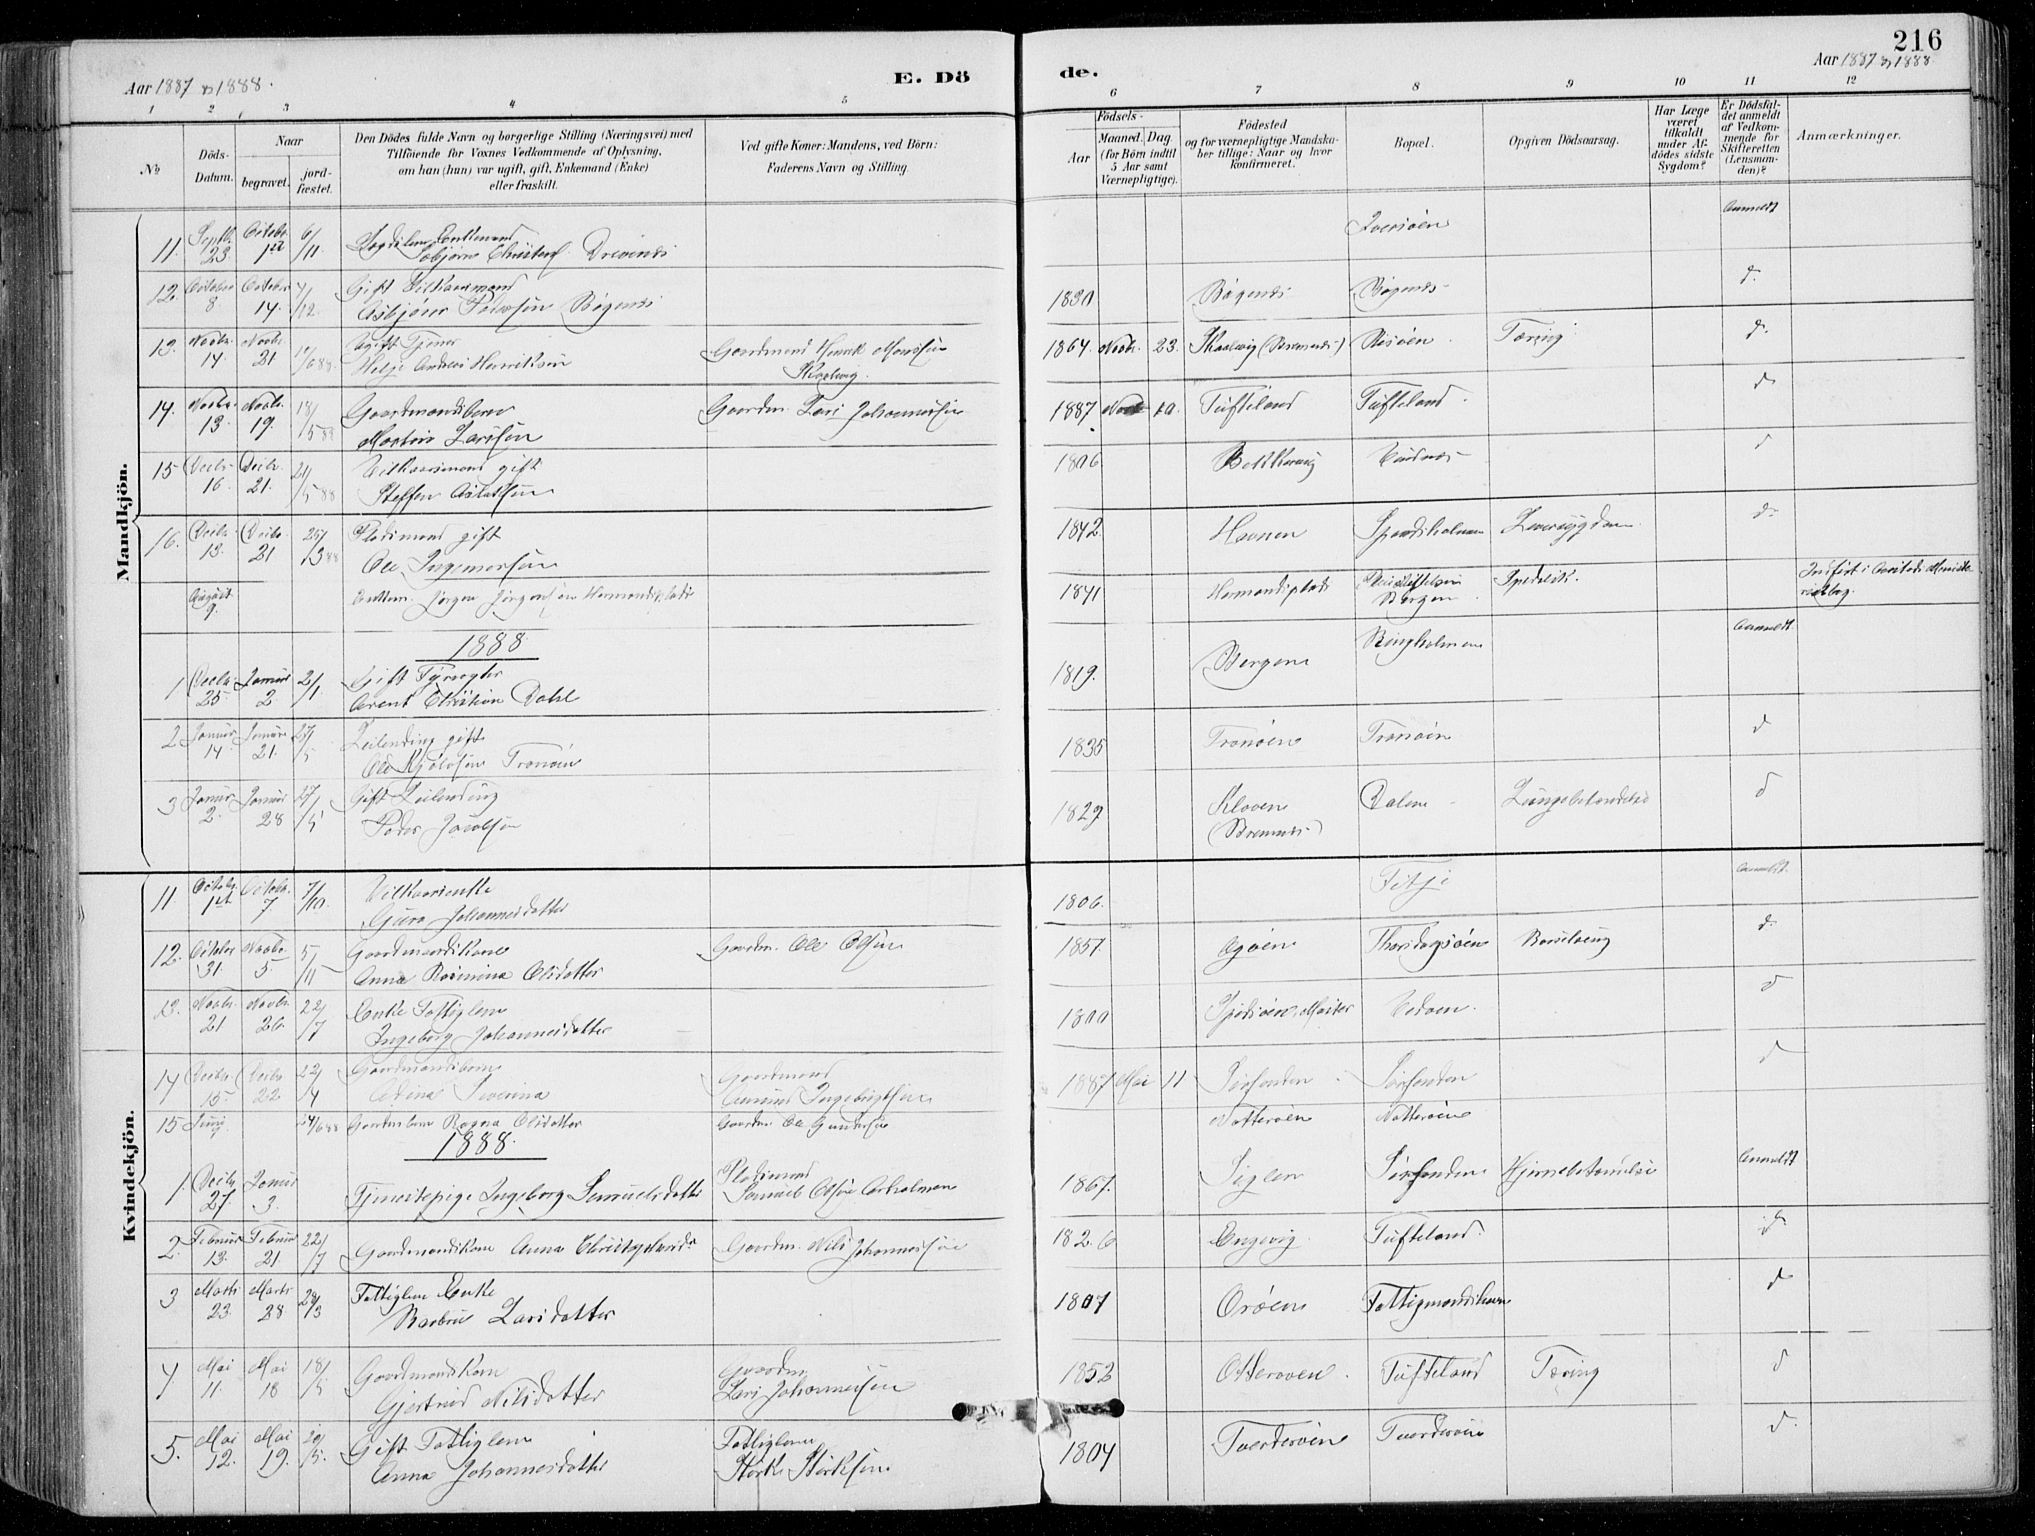 216
Aar 1887 & 1888.
E. Dö
de.
Aar 1887 & 1888.
1 2 3 4 5 6 7 8 9 10 11 12
No
Döds-
Datum.
Naar
begravet.
jord-
fæstet.
Den Dödes fulde Navn og borgerlige Stilling (Næringsvei) med
Tilföiende for Voxnes Vedkommende af Oplysning,
om han (hun) var ugift, gift, Enkemand (Enke)
eller fraskilt.
Ved gifte Koner: Mandens, ved Börn:
Faderens Navn og Stilling.
Födsels-
Aar
Maaned. Dag.
(for Börn indtil
5 Aar samt
Værnepligtige).
Födested
og for værnepligtige Mandska-
ber tillige: Naar og hvor
konfirmeret.
Bopæl.
Opgiven Dödsaarsag.
Har Læge
været
tilkaldt
under Af-
dödes sidste
Sygdom?
Er Dödsfal-
det anmeldt
af Vedkom-
mende for
Skifteretten
(Lensman-
den)?
Anmærkninger.
Mandkjön.
11. Septb. 23 Octobr. 1st 6/11 Christens. Drivenes Anmeldt
12. October 8. October 14. /12. Gift Vilkaarsmand
Asbjörn Bögenes 1830 Bögenes Bögenes d.
13. Novbr. 14. Novbr. 21 Ugift Tjener
Helje Andreas Henriksen Gaardmand Henrik Monsen
Skaalvig. 1864. Novbr. 23. Skaalvig (Bremnes) Risöen. Tæring d.
14. Novbr. 13. Novbr. 19. 18/5 88 Gaardmandsbarn
Martin Larssen Gaardm. Lars Johannessen 1887 10. Tufteland Tufteland. d
15 Decbr. 16. Decbr. 21. 21/5 88 Vilkaarsmand gift
Steffen Aslaksen 1806 Bekkervig d
16. Decbr. 13. Decbr. 21 25/3 88 Pladsmand gift
Ole Ingemarsen 1842 Havnen Leversygdom d.
August 9. Enkem. Jörgen Jörgensen Hermandsplads 1841 Hermandsplads Pleiestiftelsen
Bergen. Spedalsk. Indfört i Ministe-
rialbog.
1888
1 Decbr. 25. Januar 2 2/1. Gift Fyrvogter
Arent Christian Dahl 1819. Bergen Ringholmen Anmeldt.
2 Januar 14. Januar 21. 27/5 Leilending gift
Ole Tronöen 1835 Tronöen Tronöen d
3 Januar 2. Januar 28 27/5 Gift Leilending
Peder Jacobsen 1829 Kloven
(Bremnes) Dalen Lungebetændelse d
Kvindekjön.
11 Octobr. 1st Octobr. 7 7/10. Vilkaarsenke
Guro Johannesdatter 1806. Fitje Anmeldt.
12. October 31. Novbr. 5. 5/11 Gaardmandskone
Anna Rasmina Olsdatter Gaardm. Ole Olsen 1857. Agöen Thorsdagsöen Barselseng d.
13. Novbr. 21 Novbr. 26. 22/7 Enke Fattiglem
Ingeborg Johannesdatter 1800 Vedöen. d
14 Decbr. 15. Decbr. 22 22/4 Gaardmandsbarn
Edina Severina Gaardmand
Ingebrigtsen 1887 Mai 11 Sörfonden Sörfonden d
15 Juni 9. 14/6 88 Gaardmbarn Ragna Olsdatter Gaardm. Ole Gundersen Natteröen Natteröen
1888.
1. Decbr. 27. Januar 3. Tjenestepige Ingeborg Samuelsdatter Pladsmand
Samuel Olsen 1867. Siglen Sörfonden Hjernebetændelse Anmeldt
2. Februar 13. Februar 21 22/7 Gaardmandskone Anna Gaardm. Nils Johannessen 1826 Engevig. Tufteland. d.
3 Marts 23. Marts 28 28/3 Fattiglem Enke
Barbru Larsdatter 1807 Oröen d
4 Mai 11. Mai 18 18/5 Gaardmandskone
Gjertrud Nilsdatter Gaardm.
Lars Johannessen 1852 Otteröen. Tufteland Tæring d
5. Mai 12. Mai 19. 20/5. Gift Fattiglem
Anna Johannesdatter Fattiglem
Störk Störksen 1804 Tverderöen Tverderöen d.